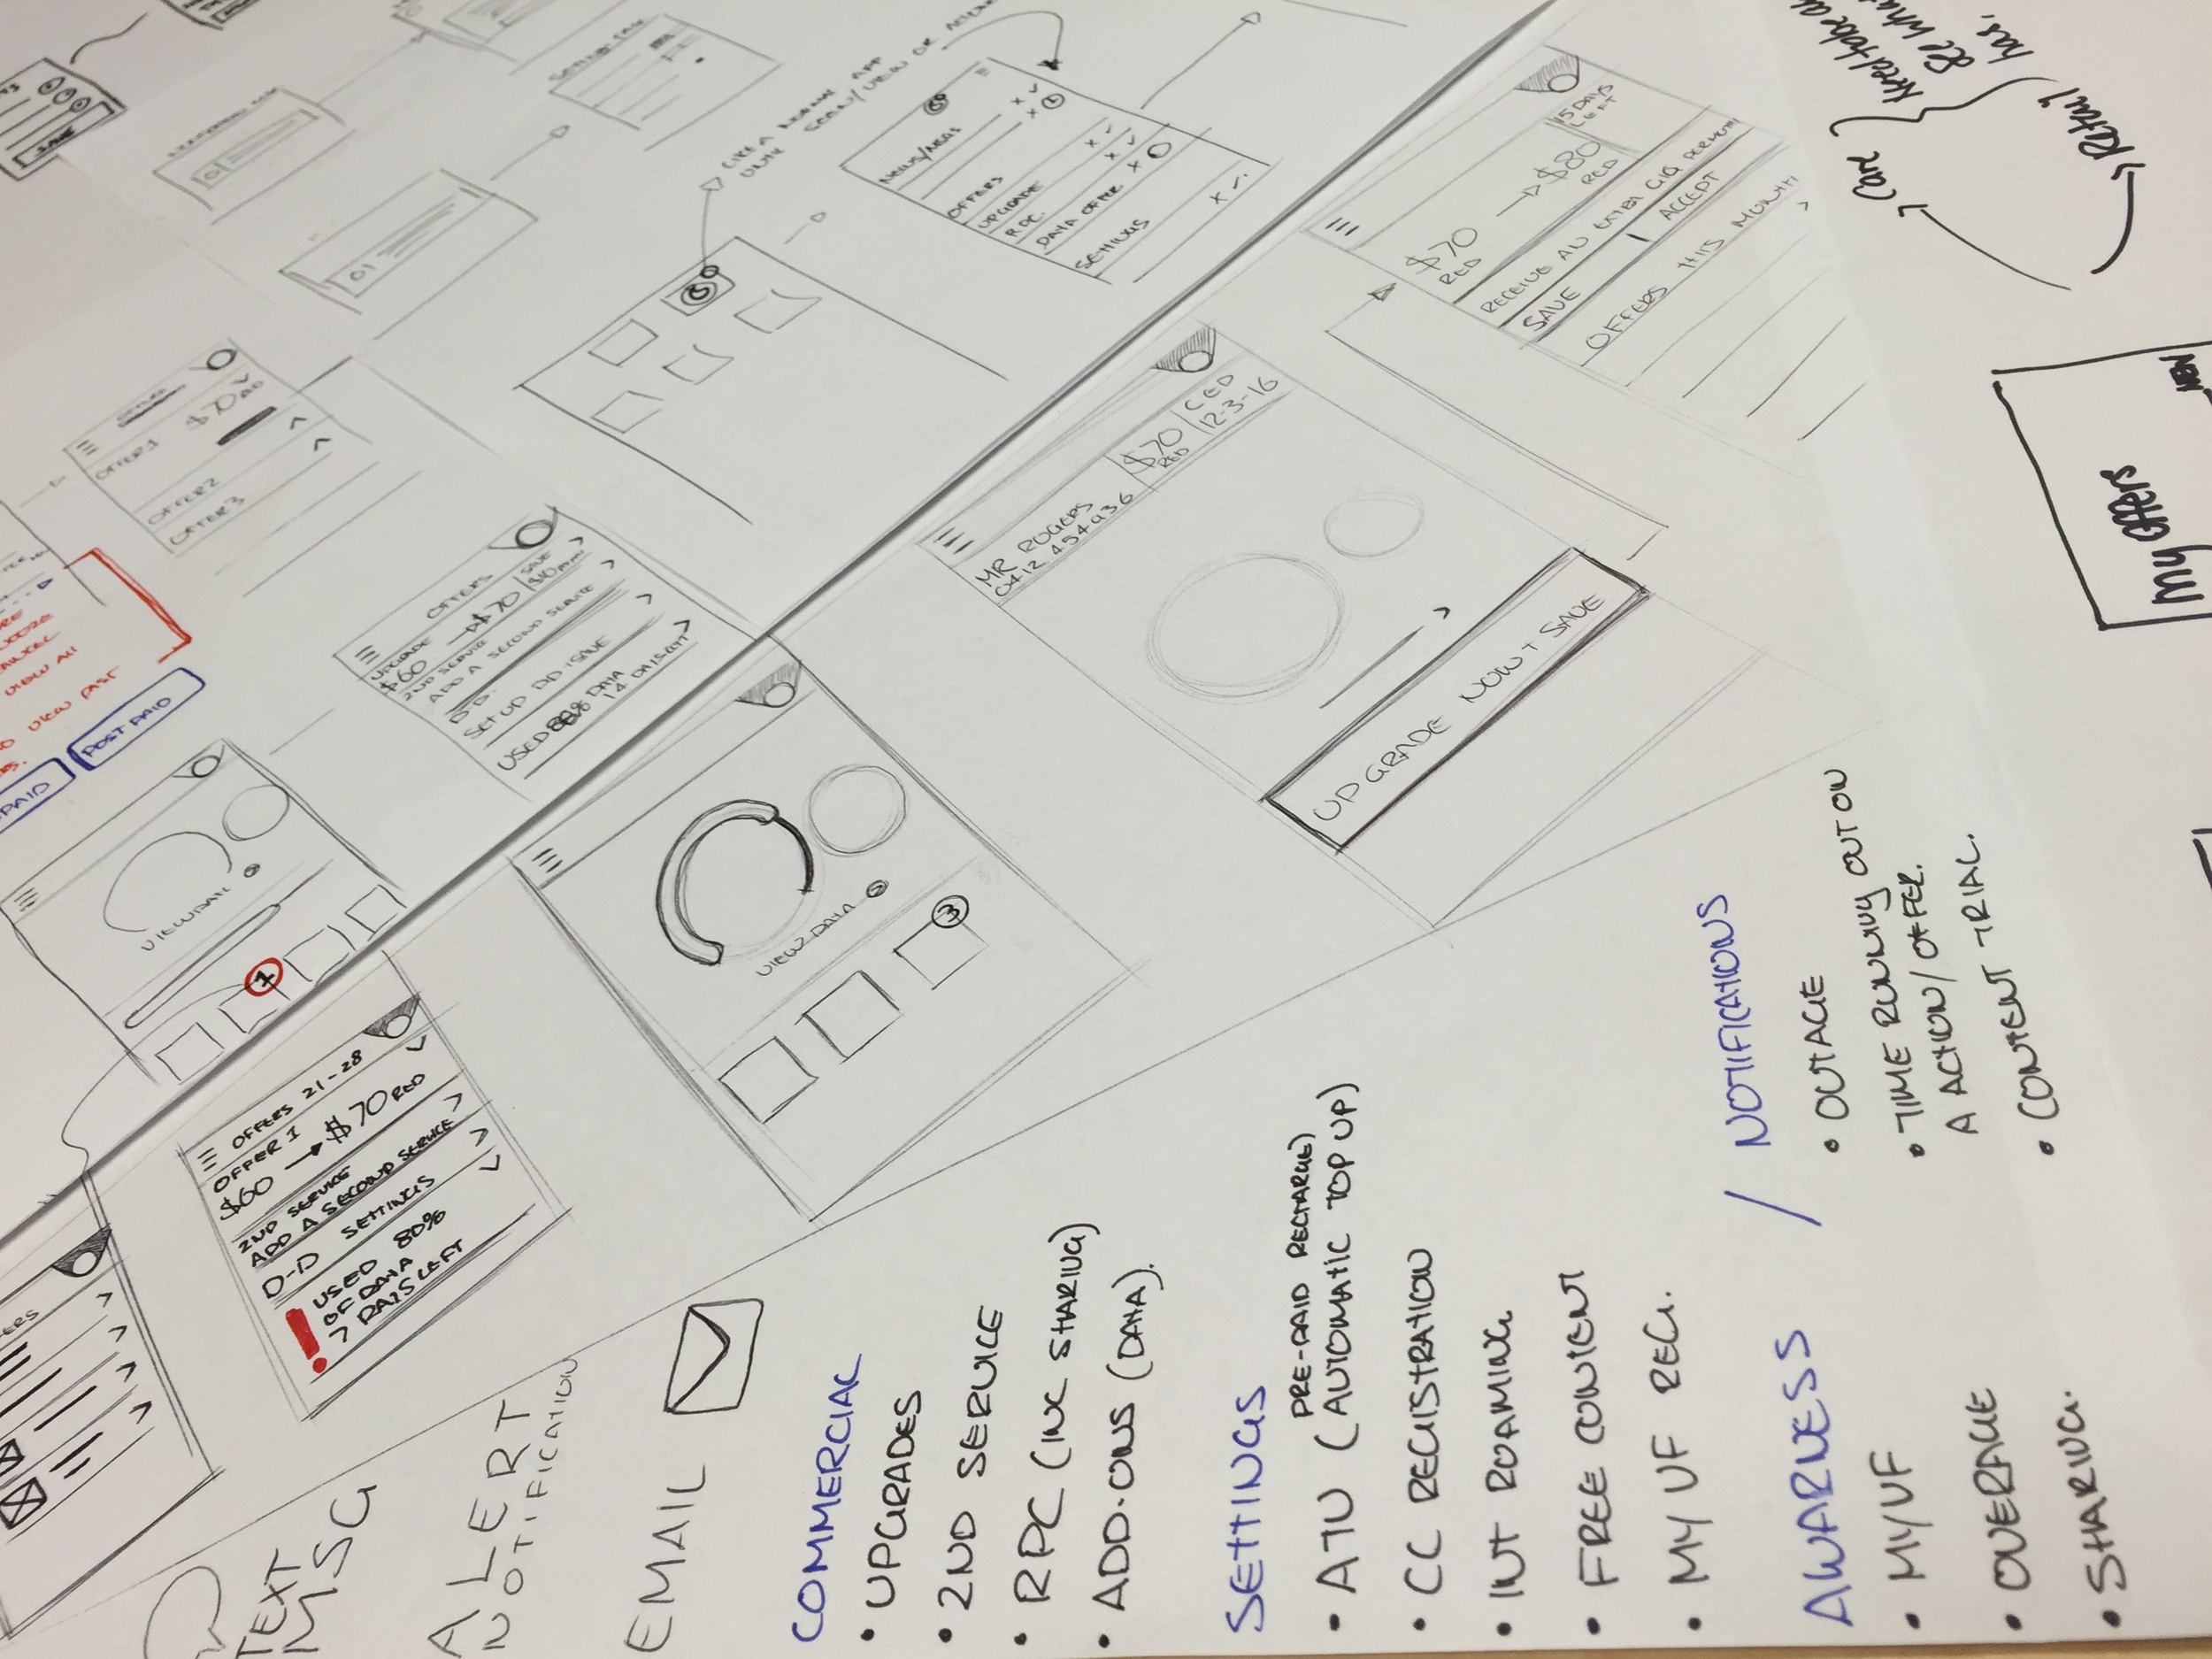 LIKE A NORMAL APP
NEWS/MEGS
OFFERS
UPGRADE
RPC.
DATA OFFER
SETTINGS
15 DAYS
LEFT
$70 → $80
RED RED
RECEIVE AN EXTRA GIG
SAVE | ACCEPT
OFFERS THIS MONTH
Care
Retail
See what
has,
My offers
NEW
OFFER 1 $70
OFFER 2
OFFER 3
OFFERS
UPGRADE
$60 → $70 SAVE
2ND SERVICE
ADD A SECOND SERVICE
D-D.
SET UP DD + SAVE
USED 80% DATA
14 DAYS LEFT
MR ROGERS
0412 454936
$70
RED
CED
12-3-16
UPGRADE NOW + SAVE
VIEW ALL
VIEW PAST
POST PAID
PAID
VIEW DATA
1
VIEW DATA
3
OFFERS 21-28
OFFER 1
$60 → $70 RED
2ND SERVICE
ADD A SECOND SERVICE
D-D SETTINGS
! USED 80%
OF DATA
7 DAYS LEFT
TEXT
MSG
ALERT
NOTIFICATION
EMAIL
COMMERCIAL
• UPGRADES
• 2ND SERVICE
• RPC (INC SHARING)
• ADD-ONS (DATA).
SETTINGS
PRE-PAID RECHARGE)
• ATU (AUTOMATIC TOP UP)
• CC REGISTRATION
• INT ROAMING
• FREE CONTENT
• MY VF REG.
AWARNESS / NOTIFICATIONS
• MYVF
• OVERAGE
• SHARING.
• OUTAGE
• TIME RUNNING OUT ON
A ACTION/OFFER.
• CONTENT TRIAL.